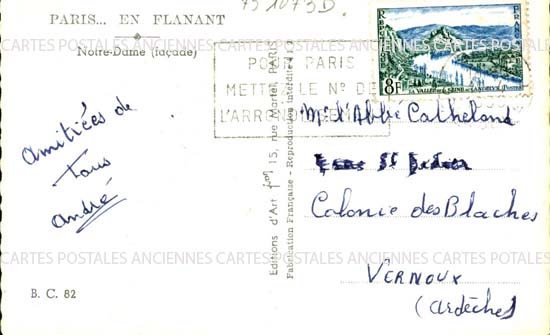 75 1073D
PARIS... EN FLANANT
Notre-Dame (façade)
POUR PARIS
METTRE LE Nº DE
L'ARRONDISSEMENT
FRANCE
8F
LA VALLÉE DE LA SEINE AUX ANDELYS
CARTES POSTALES ANCIENNES CARTES POSTALES ANCIENNES CARTES POSTALES ANCIENNES
amitiées de
tous
andré
Editions d'Art 15, rue Martel, PARIS
Fabrication Française - Reproduction interdite
Mr l'Abbé Catheland
St Didier
Colonie des Blaches
VERNOUX
(Ardèche)
B. C. 82